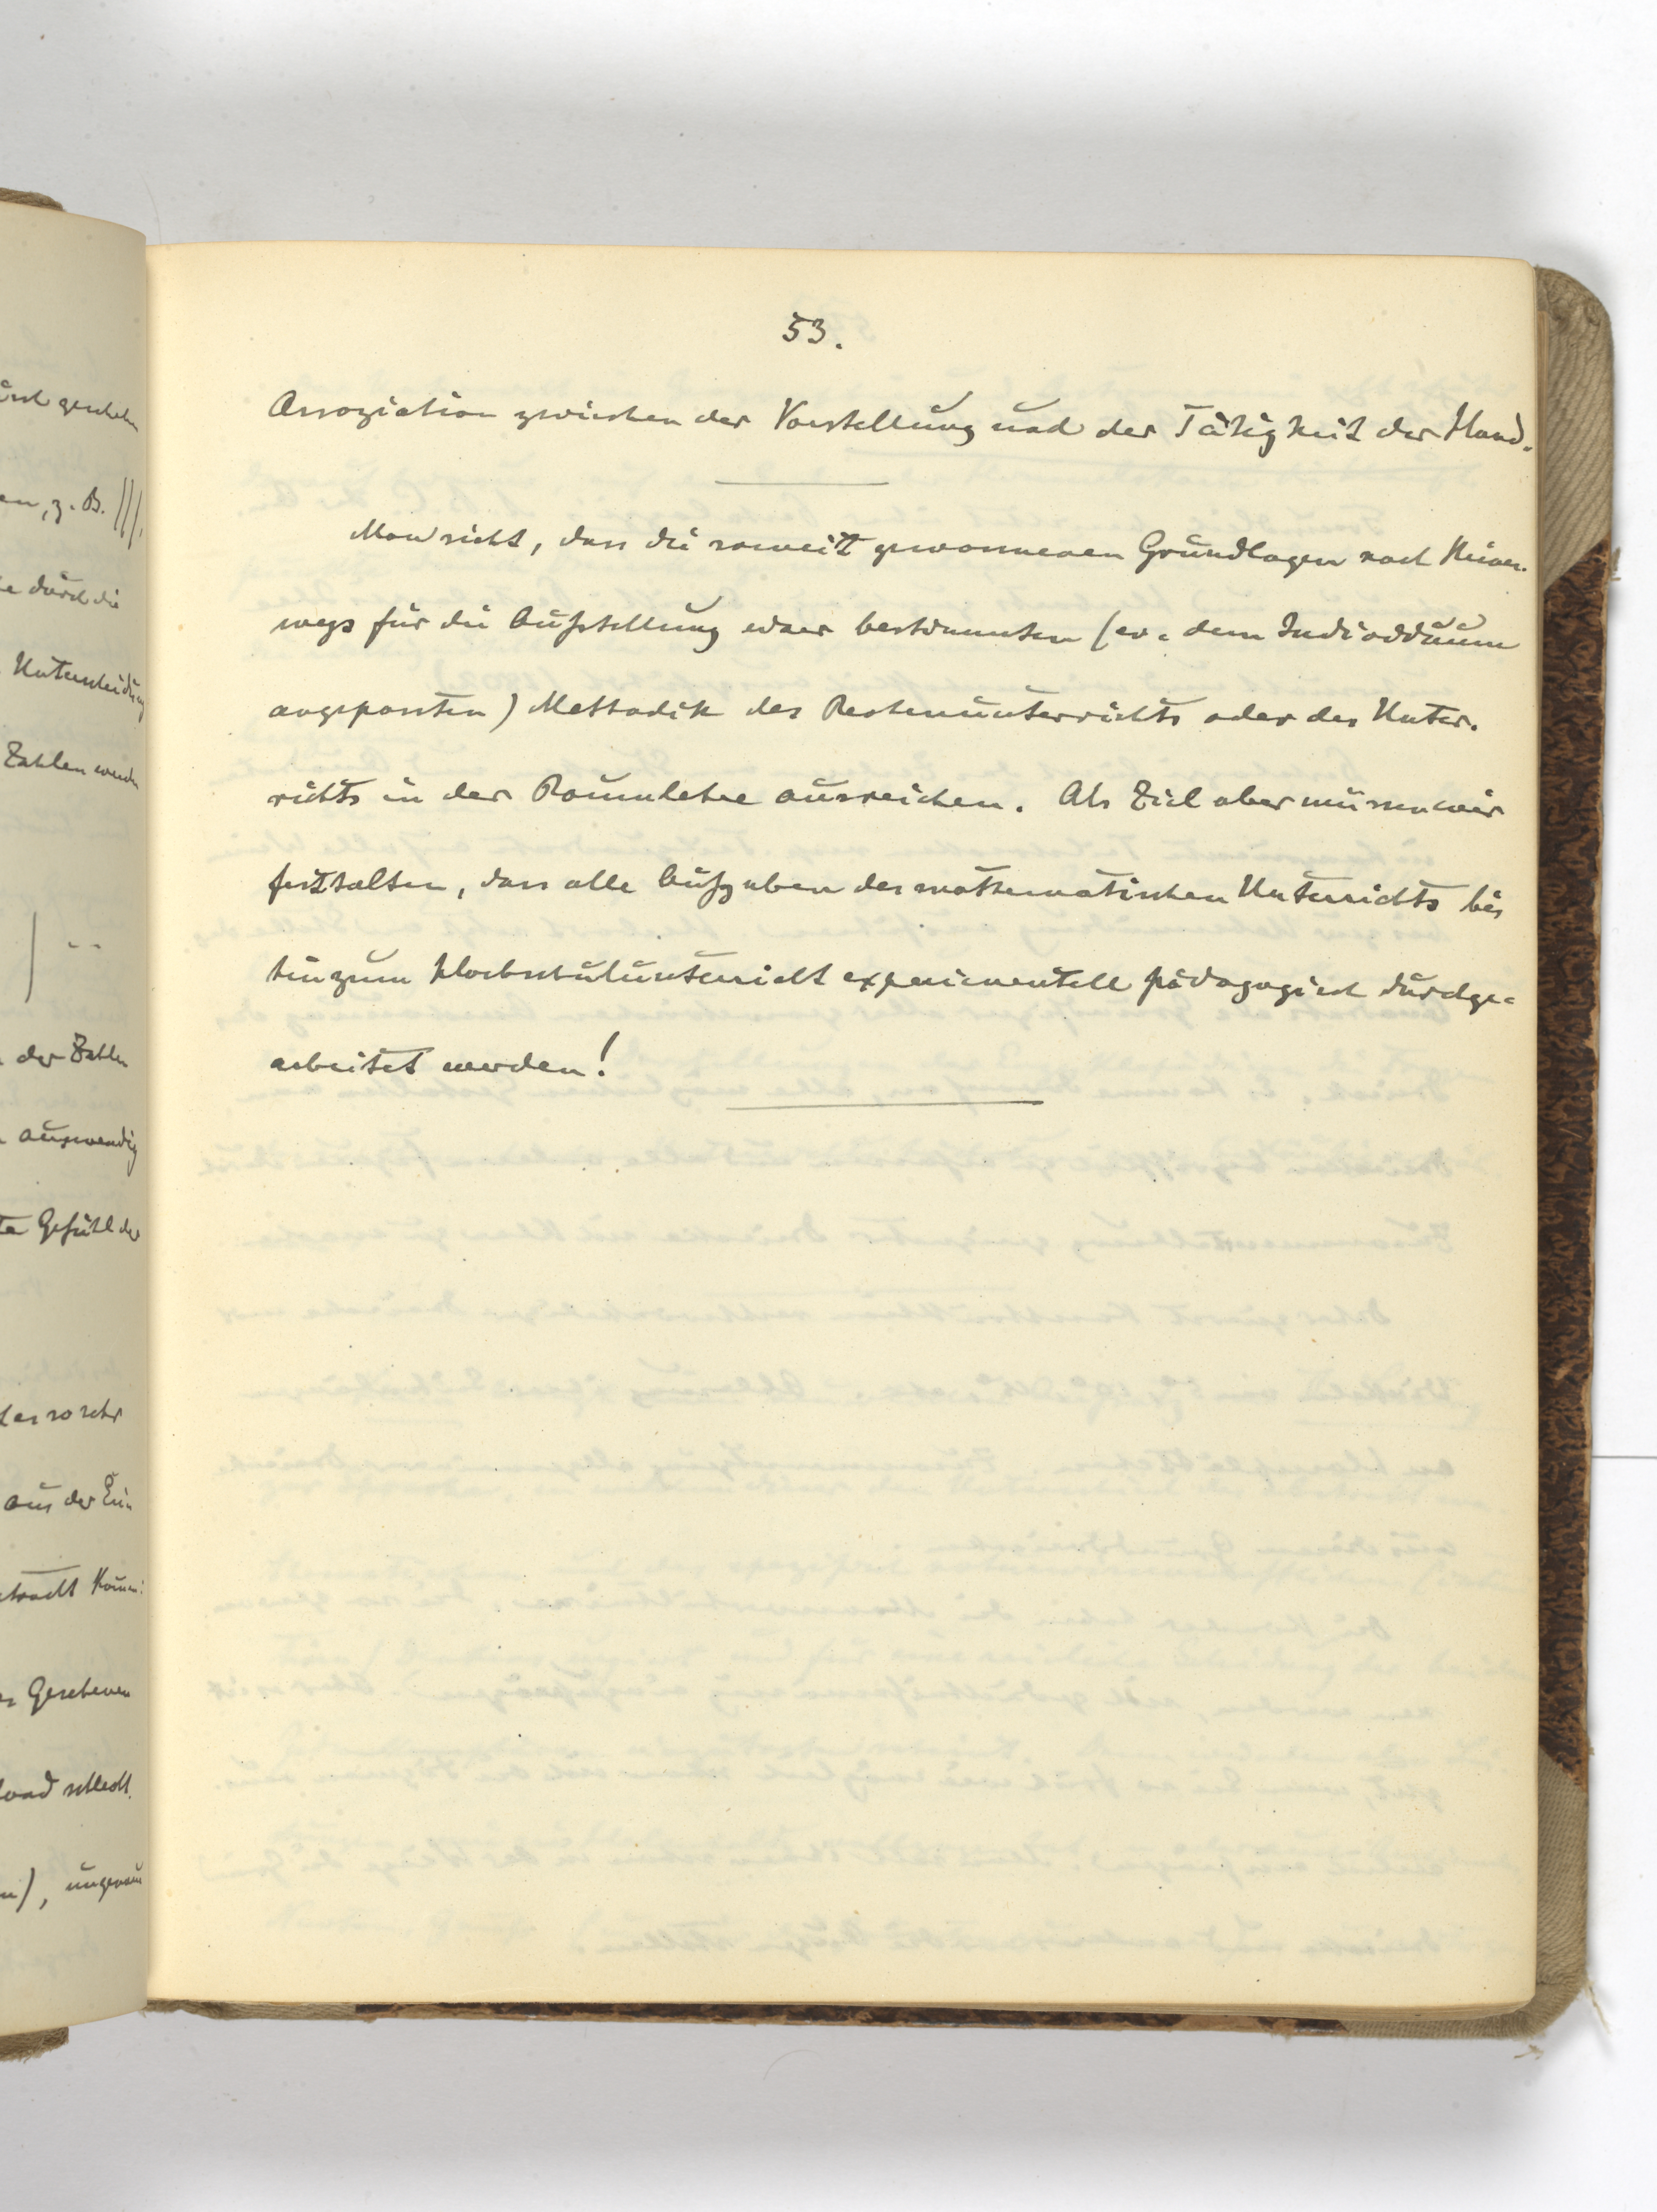 53.
Assoziation zwischen der Vorstellung und der Tätigkeit der Hand.
Man sieht, dass die soweit gewonnenen Grundlagen noch keines-
wegs für die Aufstellung einer bestimmten (ev. dem Individuum
angepassten) Methodik des Rechenunterrichts oder des Unter-
richts in der Raumlehre ausreichen. Als Ziel aber müssen wir
festhalten, dass alle Aufgaben des mathematischen Unterrichts bis
hin zum Hochschulunterricht experimentell pädagogisch durchge-
arbeitet werden!
geschehen
en, z. B. |||.
durch die
Unterscheidung
Zahlen werden
der Zahlen
auswendig
Gefühl der
es so sehr
aus der Ein
Gesehenen
schlecht.
), ungenau